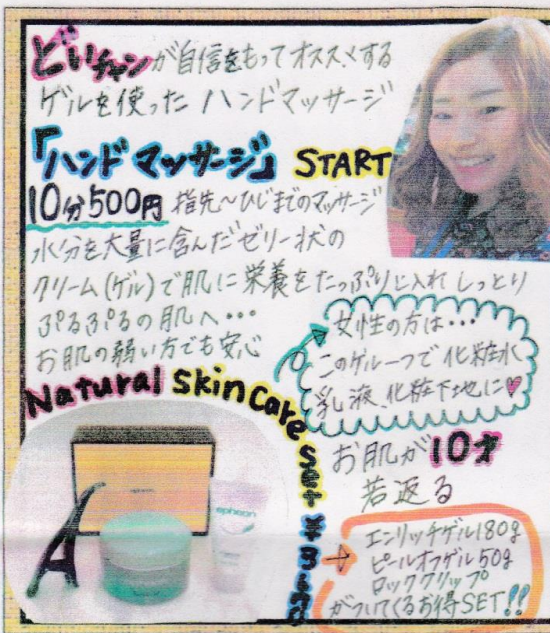 どいチャンが自信をもってオススメする
ゲルを使った ハンドマッサージ
「ハンド マッサージ」 START
10分500円 指先～ひじまでのマッサージ
水分を大量に含んだゼリー状の
クリーム(ゲル)で肌に栄養をたっぷり入れ しっとり
ぷるぷるの肌へ…
お肌の弱い方でも安心
女性の方は…
このゲル一つで化粧水
乳液、化粧下地に♥
Natural Skin Care Set
お肌が10才
若返る
エンリッチゲル180g
ピールオフゲル50g
ロッククリップ
がついてくるお得SET!!
epheon